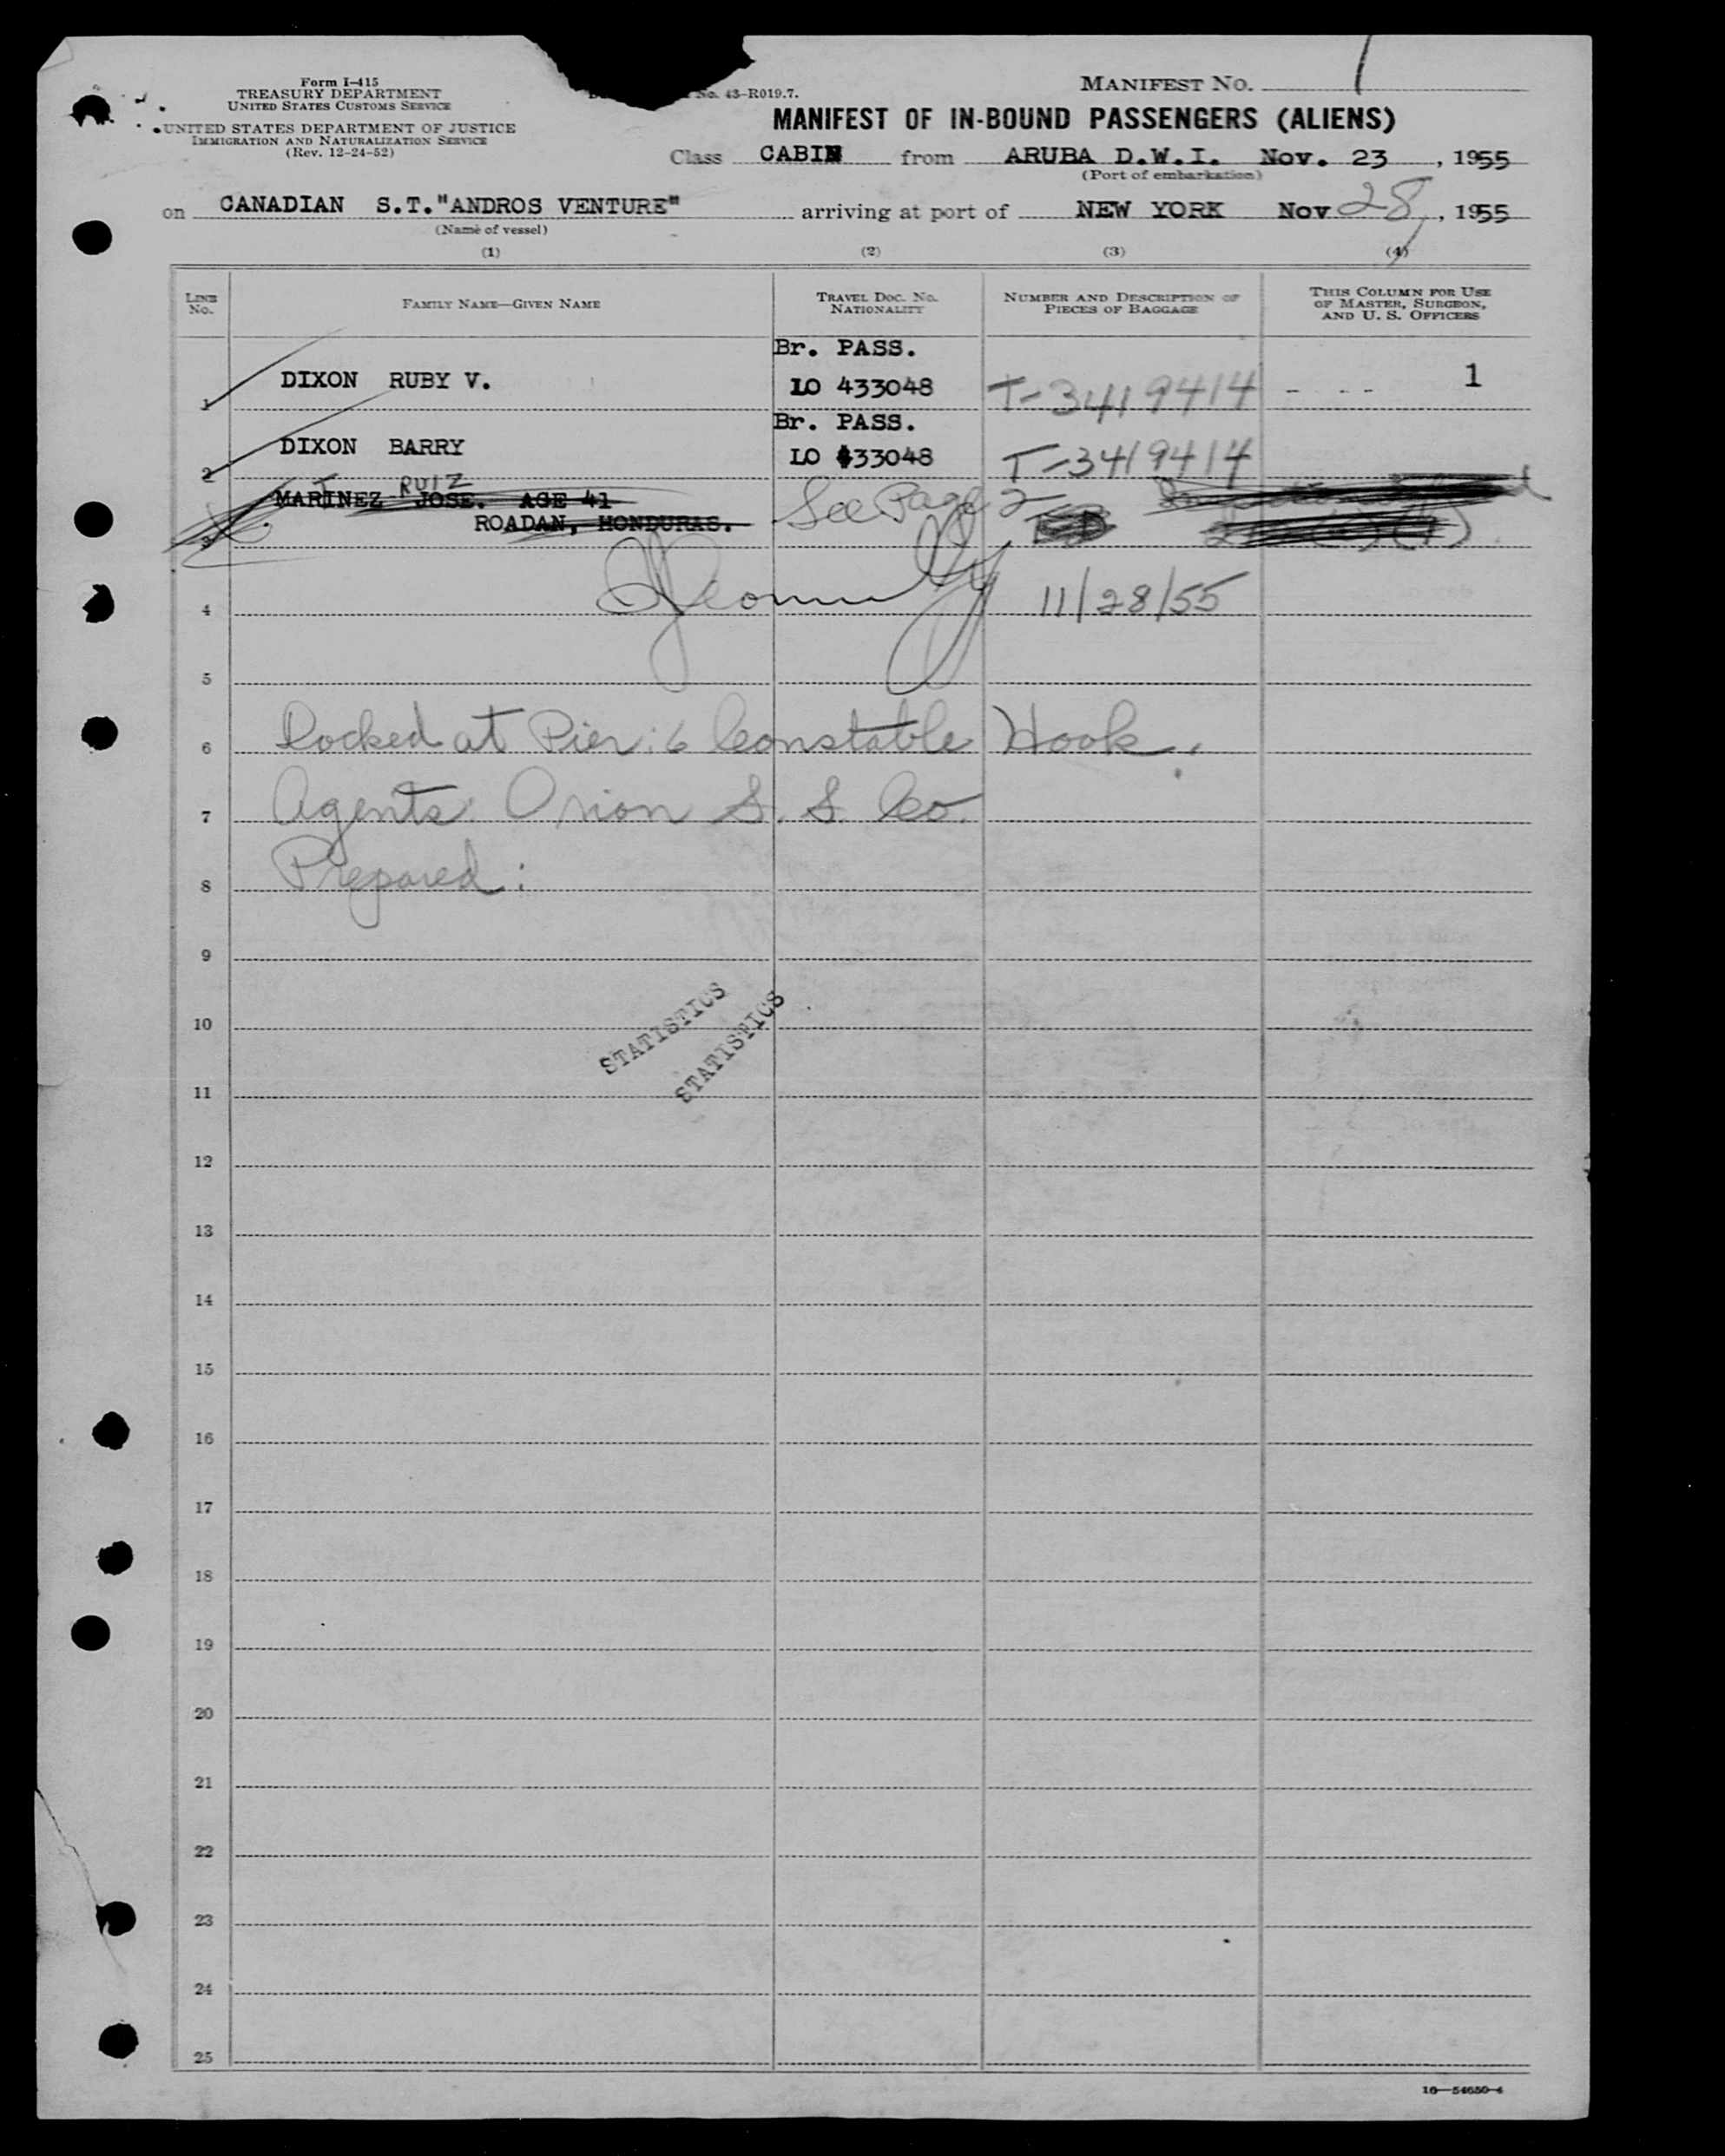 Form I-415
TREASURY DEPARTMENT
UNITED STATES CUSTOMS SERVICE
UNITED STATES DEPARTMENT OF JUSTICE
IMMIGRATION AND NATURALIZATION SERVICE
(Rev. 12-24-52)
No. 43-R019.7.
MANIFEST NO. 1
MANIFEST OF IN-BOUND PASSENGERS (ALIENS)
Class CABIN from ARUBA D.W.I. Nov. 23, 1955
(Port of embarkation)
on CANADIAN S.T."ANDROS VENTURE" arriving at port of NEW YORK Nov 28, 1955
(Name of vessel)
(1) (2) (3) (4)
LINE No. FAMILY NAME—GIVEN NAME TRAVEL DOC. NO. NATIONALITY NUMBER AND DESCRIPTION OF PIECES OF BAGGAGE THIS COLUMN FOR USE OF MASTER, SURGEON, AND U. S. OFFICERS
Br. PASS.
1 DIXON RUBY V. LO 433048 T-3419414 - - - 1
Br. PASS.
2 DIXON BARRY LO 433048 T-3419414
RUIZ
MARTINEZ JOSE. AGE 41 See Page 2
3 ROADAN, HONDURAS.
4 11/28/55
5
6 Docked at Pier: 6 Constable Hook.
7 Agents: Orion S. S. Co.
8 Prepared:
9
STATISTICS
STATISTICS
10
11
12
13
14
15
16
17
18
19
20
21
22
23
24
25
16—54650-4